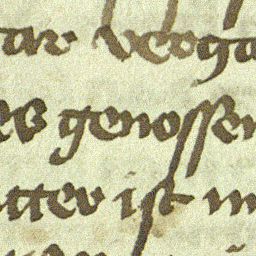 tar verga
es genossen
tter ist m